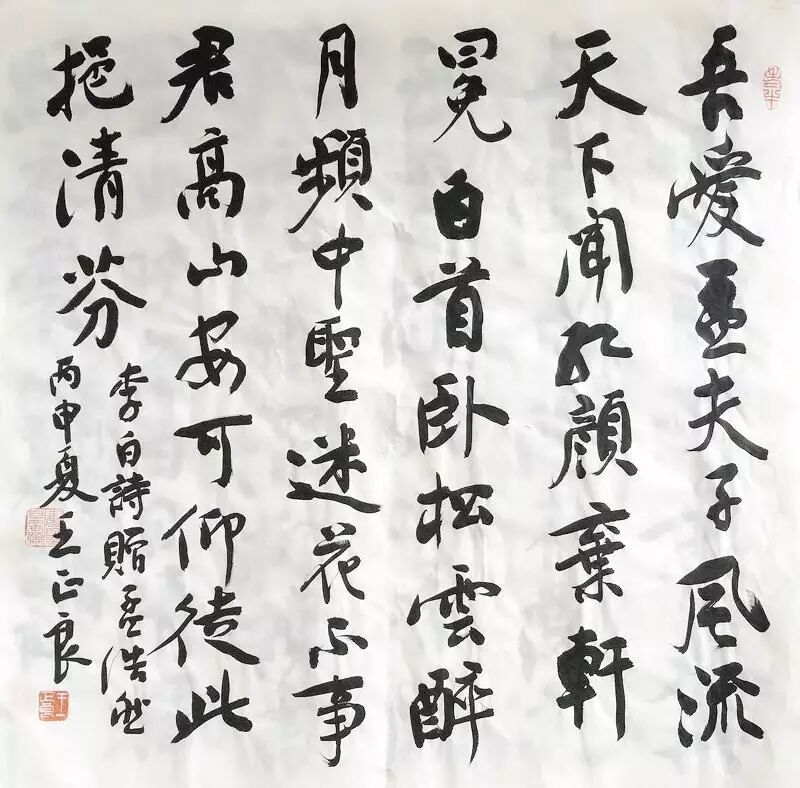 吾愛孟夫子風流
天下聞紅顏棄軒
冕白首卧松雲醉
月頻中聖迷花不事
君高山安可仰徒此
挹清芬
李白詩贈孟浩然
丙申夏王正良